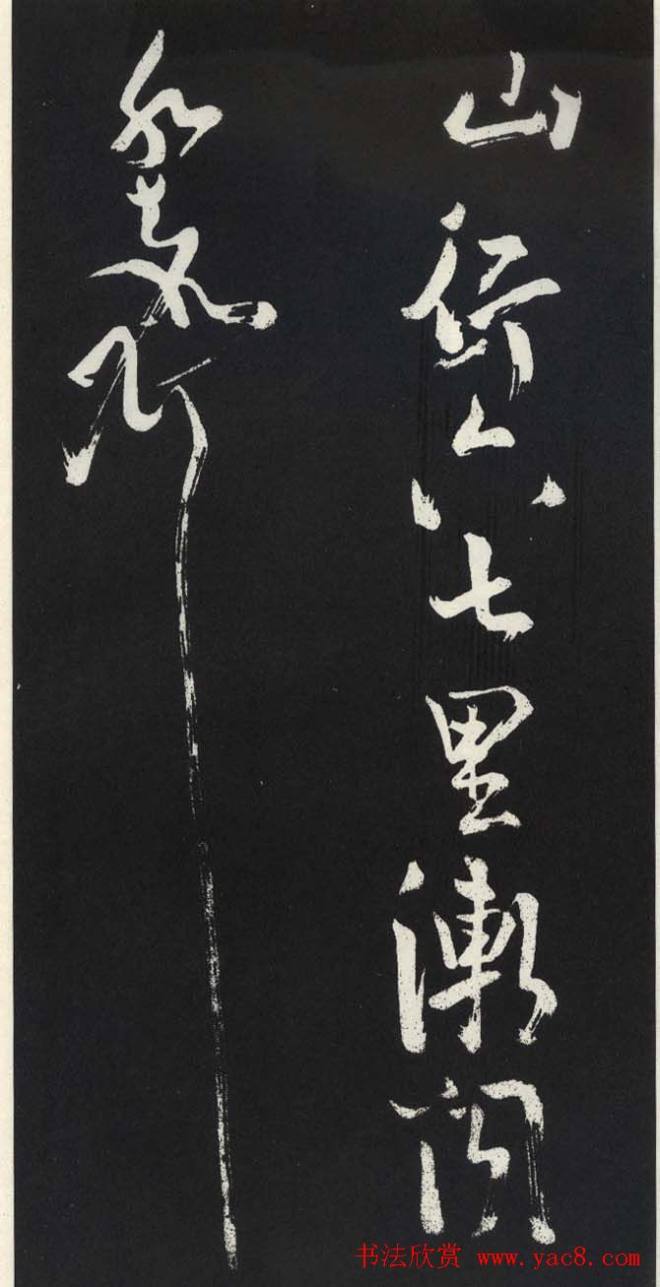 山行六七里漸聞
水聲
书法欣赏 www.yac8.com